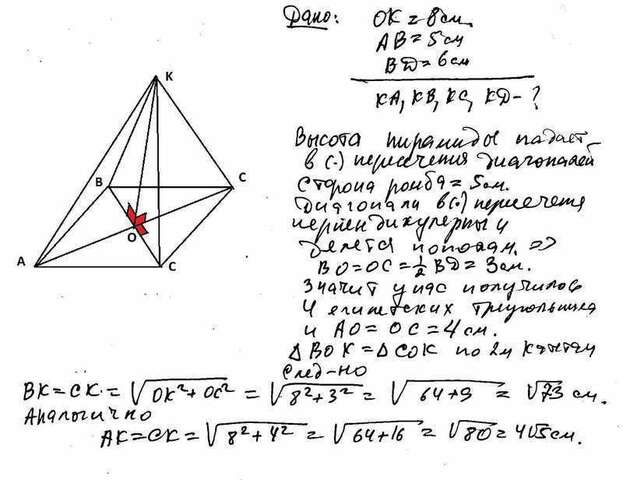 Дано: OK = 8 см.
AB = 5 см
BD = 6 см
KA, KB, KC, KD - ?
K
B
C
O
A
C
Высота пирамиды падает
в (·) пересечения диагоналей
Сторона ромба = 5 см.
Диагонали в (·) пересечения
перпендикулярны и
делятся пополам. =>
BO = OC = 1/2 BD = 3 см.
Значит у нас получилось
4 египетских треугольника
и AO = OC = 4 см.
△ BOK = △ COK по 2м катетам
След-но
BK = CK = √OK² + OC² = √8² + 3² = √64 + 9 = √73 см.
Аналогично
AK = CK = √8² + 4² = √64 + 16 = √80 = 4√5 см.